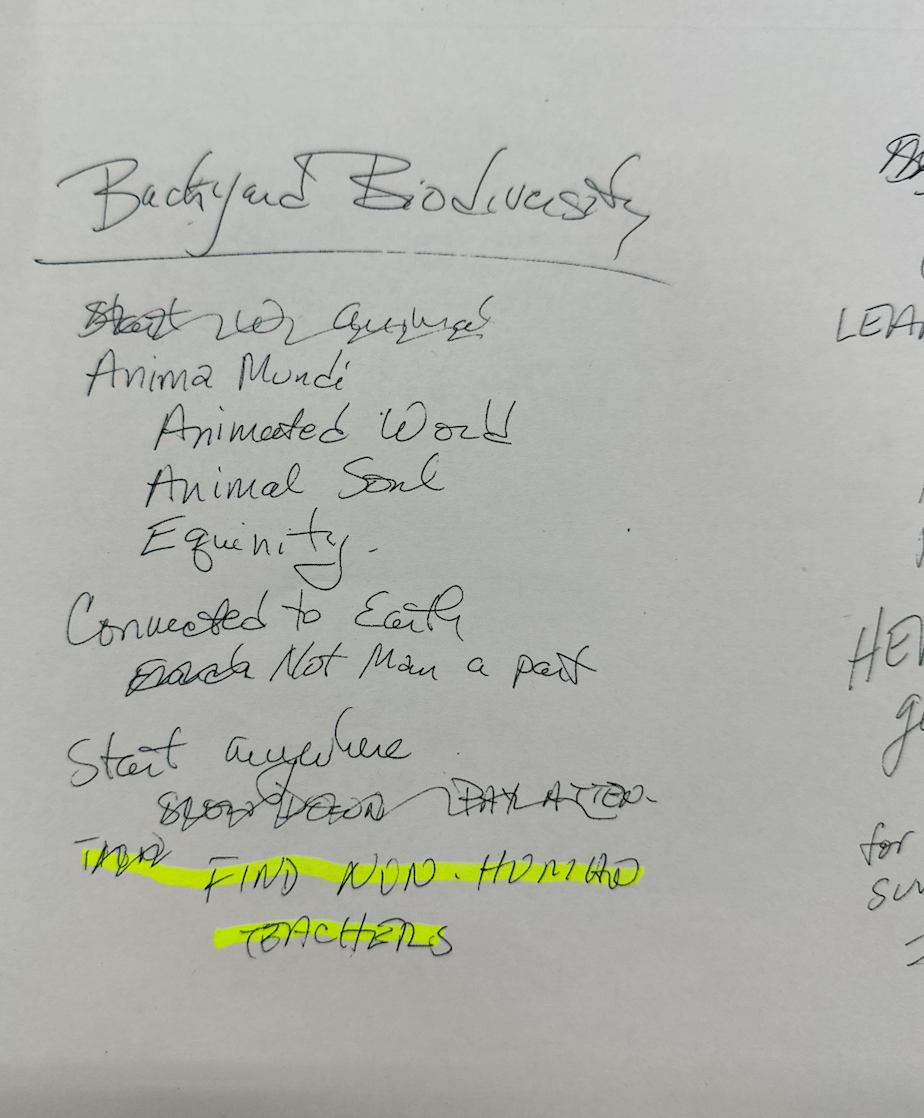 Backyard Biodiversity
Start
Anima Mundi
Animated World
Animal Soul
Equinity.
Connected to Earth
Not Man a part
Start anywhere
SLOW DOWN PAY ATTEN.
FIND NON-HUMAN
TEACHERS
LEA
HE
for